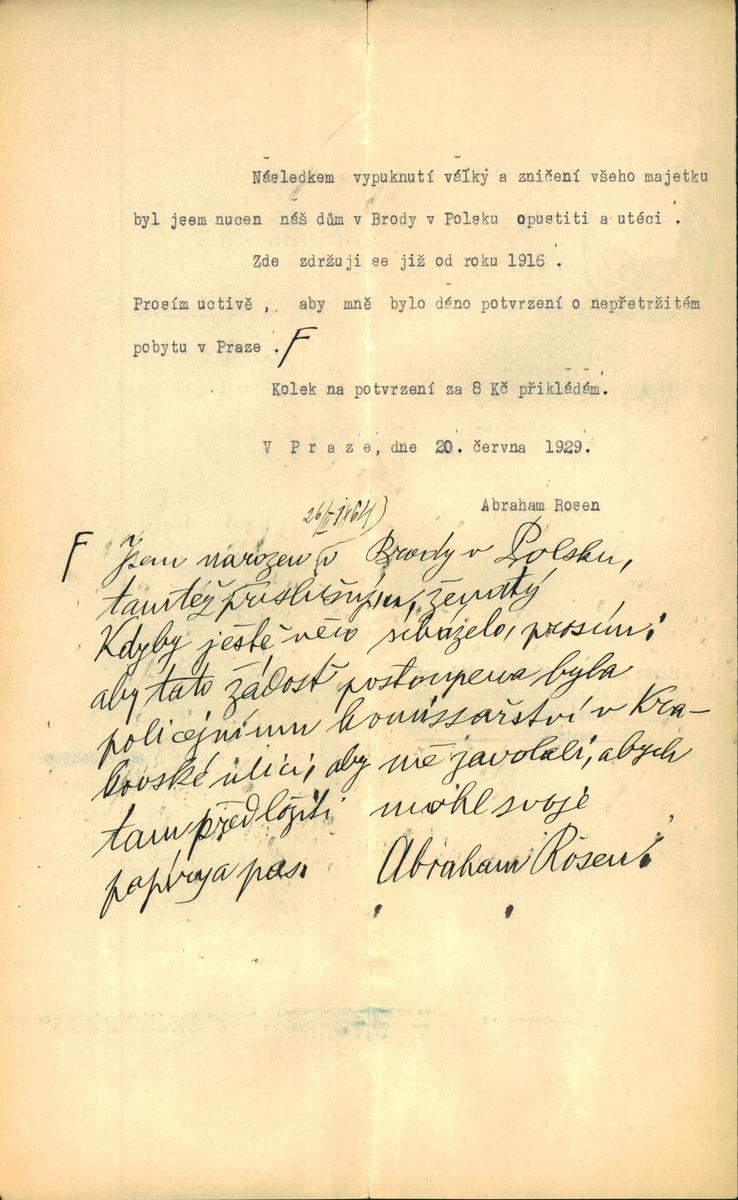 Následkem vypuknutí války a zničení všeho majetku
byl jsem nucen náš dům v Brody v Polsku opustiti a utéci .
Zde zdržuji se již od roku 1916 .
Prosím uctivě , aby mně bylo dáno potvrzení o nepřetržitém
pobytu v Praze . F
Kolek na potvrzení za 8 Kč přikládám.
V P r a z e , dne 20. června 1929.
Abraham Rosen
26/II 1864)
F Jsem narozen v Brody v Polsku,
tamtéž příslušným, ženatý
Kdyby ještě něco scházelo, prosím,
aby tato žádost postoupena byla
policejnímu komissařství v Kra-
kovské ulici, aby mě zavolali, abych
tam předložiti mohl svoje
papíry a pas. Abraham Rosen